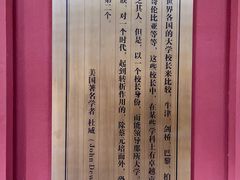 世界各国的大学校长来比较，牛津、剑桥、巴黎、柏
哥伦比亚等等，这些校长中，在某些学科上有卓越
乏其人，但是，以一个校长身份，而能领导那所大学
族、对一个时代，起到转折作用的，除蔡元培而外，恐
第二个。
美国著名学者 杜威（John Dew